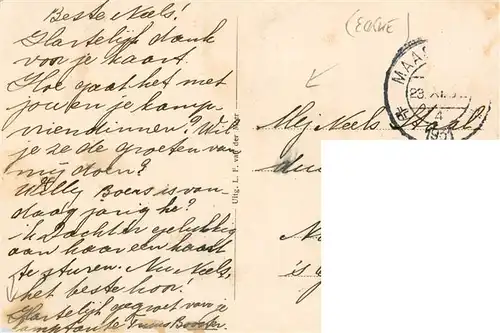 Beste Neels!
Hartelijk dank
voor je kaart.
Hoe gaat het met
jou en je kamp-
vriendinnen? Wil
je ze de groeten van
mij doen?
Willy Boers is van-
daag jarig he?
ik dacht er gelukkig
aan haar een kaart
te sturen. Nu Neels,
het beste hoor!
Hartelijk gegroet van je
kamptante
Uitg. L. F. van der Meer
MAAS
23.XI
4
Mej Neels Staal